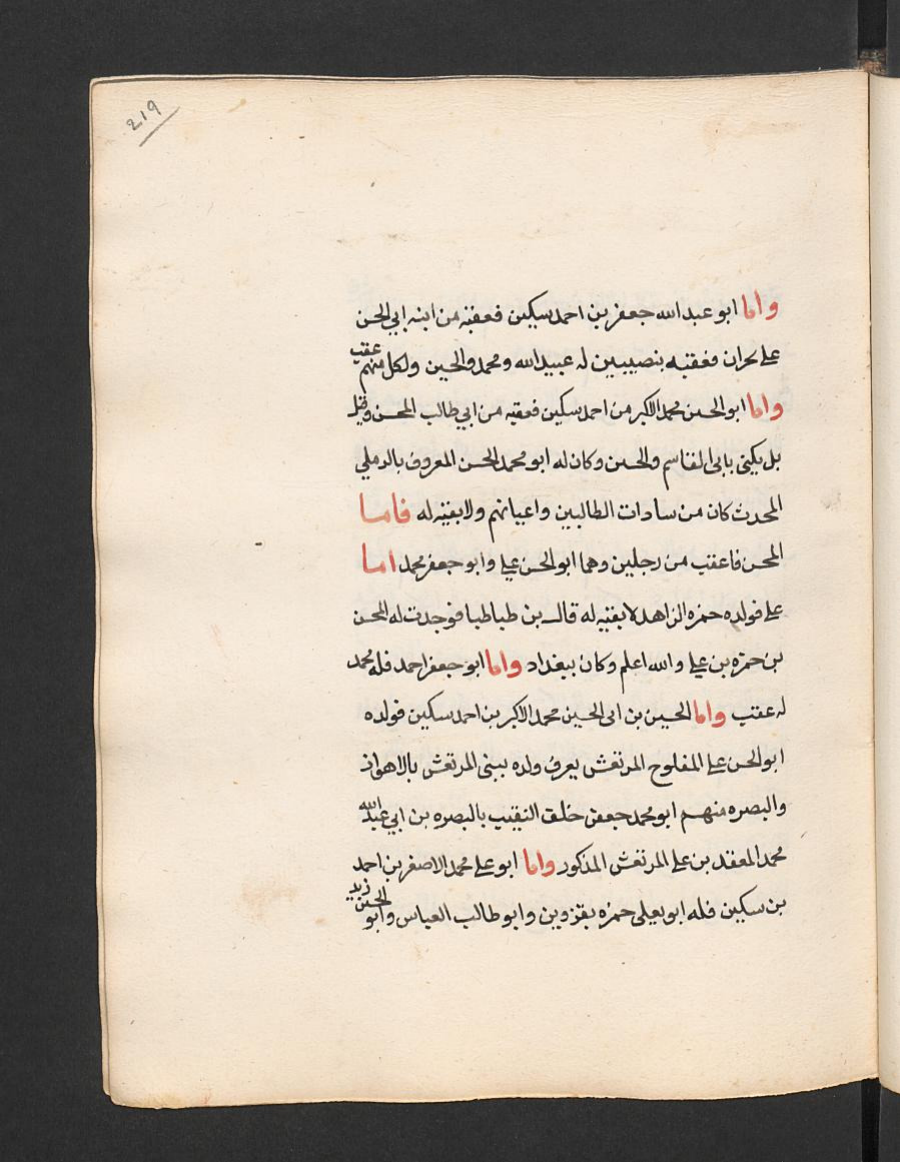 219
واما ابو عبد الله جعفر بن احمد سكين فعقبه من ابنه ابي الحسن
علي بحران فعقبه بنصيبين له عبيد الله ومحمد والحسين ولكل منهم عقب
واما ابو الحسن محمد الاكبر من احمد سكين فعقبه من ابي طالب المحسن وقيل
بل يكنى بابي القاسم والحسن وكان له ابو محمد الحسن المعروف بالرملي
المحدث كان من سادات الطالبين واعيانهم ولا بقيه له فاما
المحسن فاعقب من رجلين وهما ابو الحسن علي وابو جعفر محمد اما
علي فولده حمزه الزاهد لا بقيه له قال بن طباطبا فوجدت له المحسن
بن حمزه بن علي والله اعلم وكان ببغداد واما ابو جعفر احمد فله محمد
له عقب واما الحسين بن ابي الحسين محمد الاكبر بن احمد سكين فولده
ابو الحسن علي المفلوج المرتعش يعرف ولده ببنى المرتعش بالاهواز
والبصره منهم ابو محمد جعفر خلف النقيب بالبصره بن ابي عبد الله
محمد المعقد بن علي المرتعش المذكور واما ابو علي محمد الاصغر بن احمد
بن سكين فله ابو يعلى حمزه بقزوين وابو طالب العباس وابو الحسين زيد